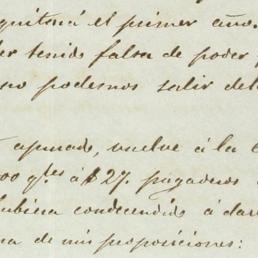 quitará el primer año.
ler tenido falsa de poder
no podemos salir del
apurado, vuelve á la
00 qtes á $27. pagaderos
hubiera condecendido á dar
na de mis proposiciones: